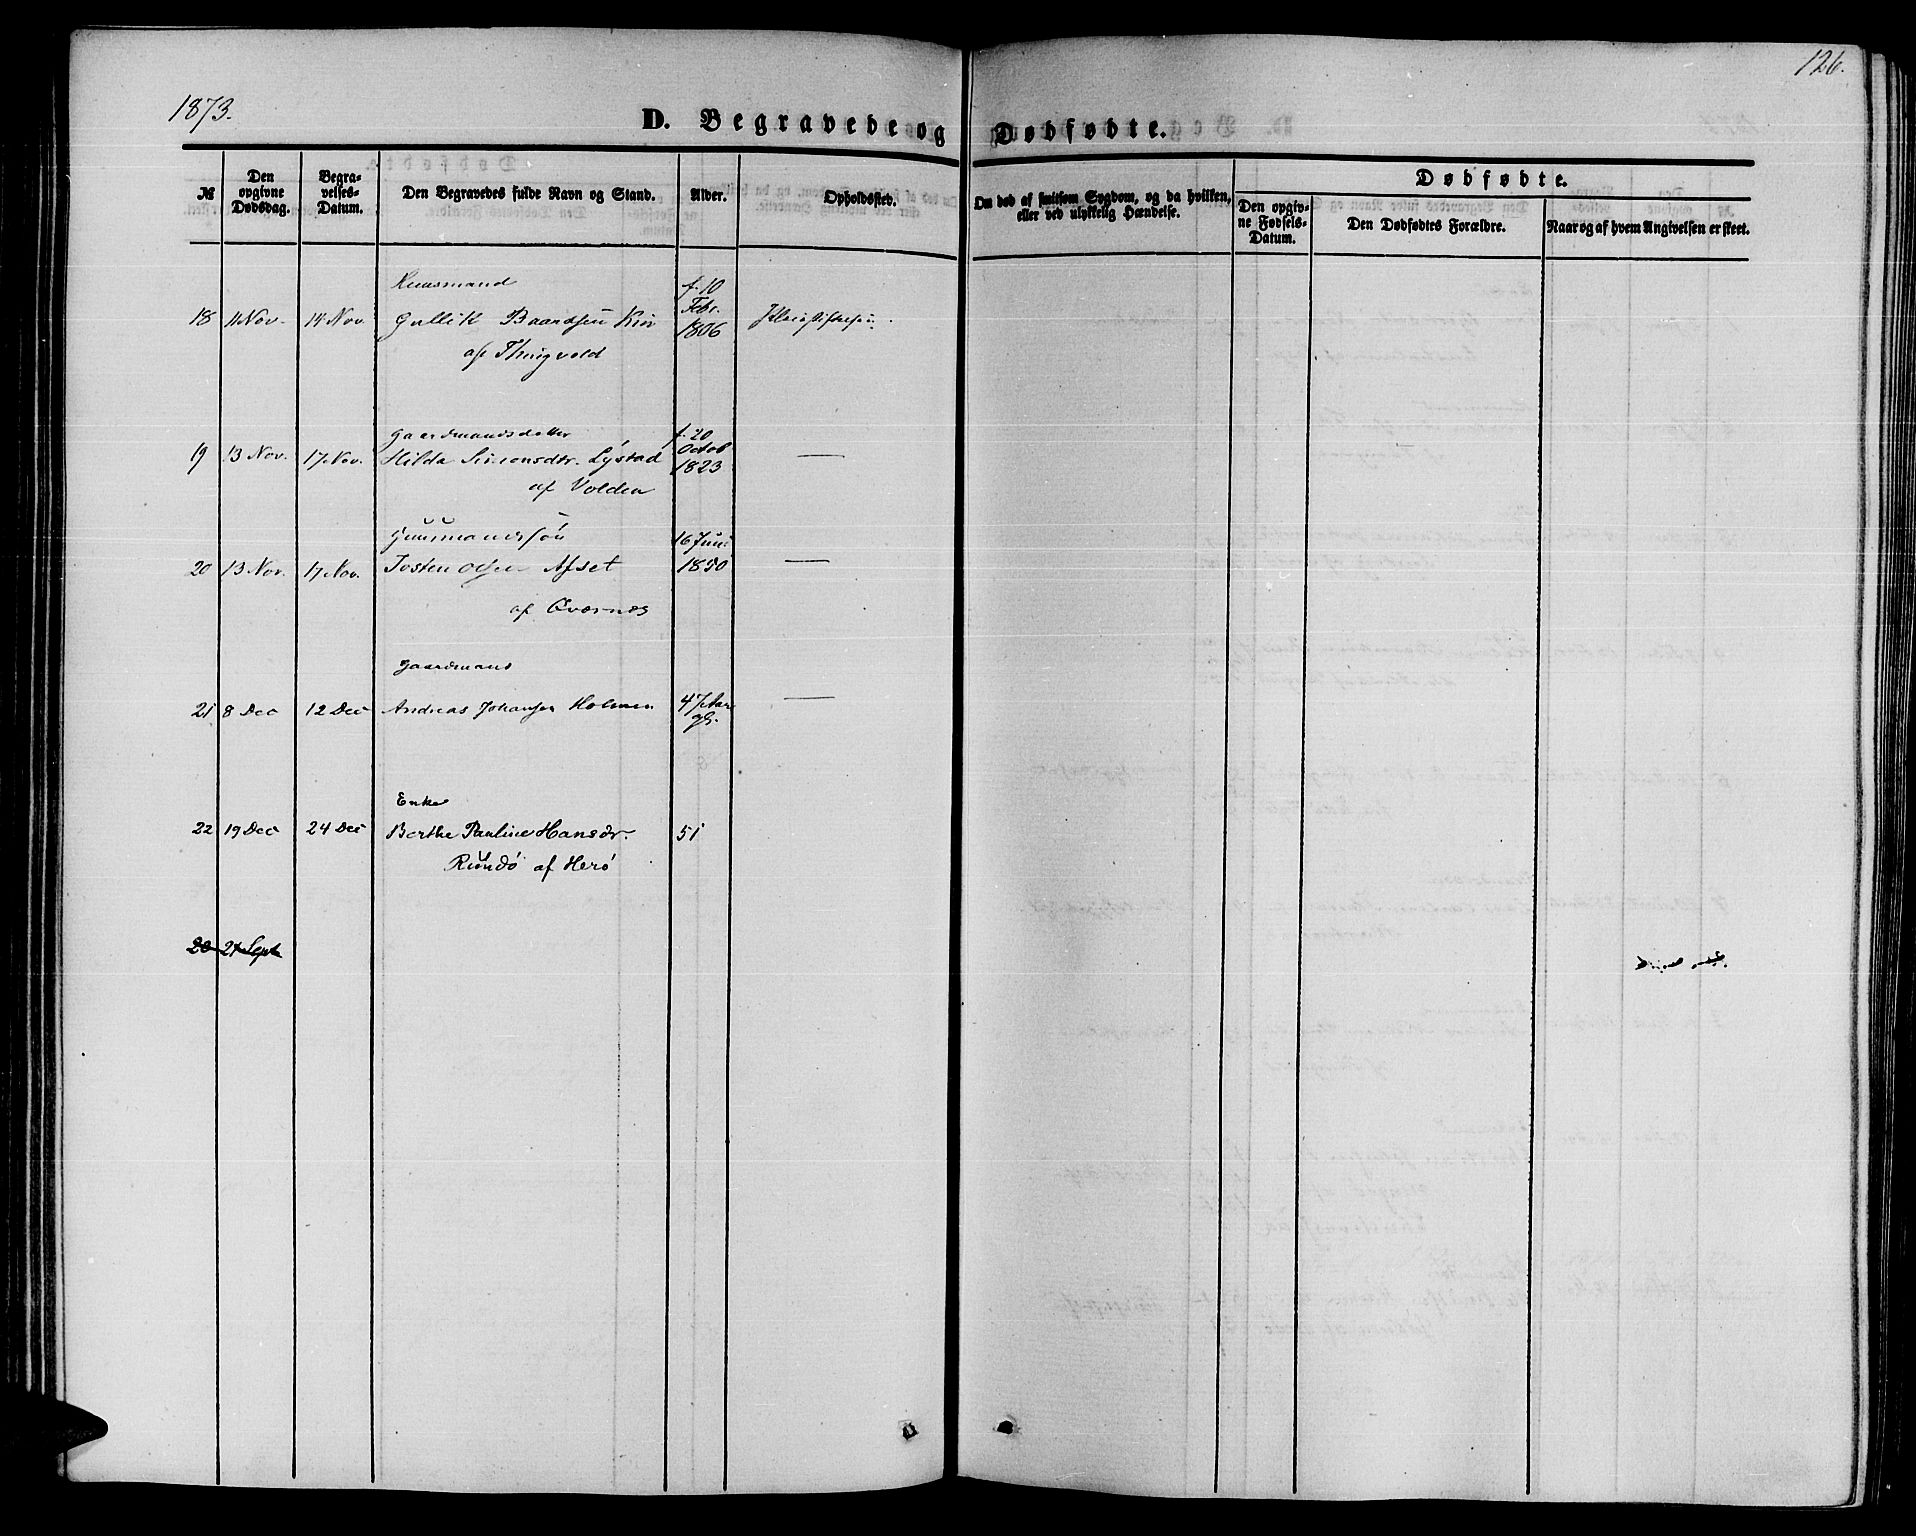 1873.
126.
D. Begravede og Dødfødte.
№
Den opgivne Dødsdag.
Begravelses-Datum.
Den Begravedes fulde Navn og Stand.
Alder.
Opholdssted.
Om død af smitsom Sygdom, og da hvilken, eller ved ulykkelig Hændelse.
Dødfødte.
Den opgivne Fødsels-Datum.
Den Dødfødtes Forældre.
Naar og af hvem Angivelsen er skeet.
Huusmand
18 11 Nov. 14 Nov. Gullik Baardsen f. 10 Febr. 1806
af Thingvold
Gaardmandsdatter
19 13 Nov. 17 Nov. Hilda Simonsdtr. Lystad f. 20 Octob 1823 —
af Volden
Huusmandssøn
20 13 Nov. 17 Nov. Josten Olsen Afset 16 Juni 1850 —
af Qværnes
Gaardmand
21 8 Dec 12 Dec Andreas Johansen Holmen 47 Aar gl. —
Enke
22 19 Dec 24 Dec Berthe Pauline Hansdr. 51
Rundø af Herø
20 21 Sept